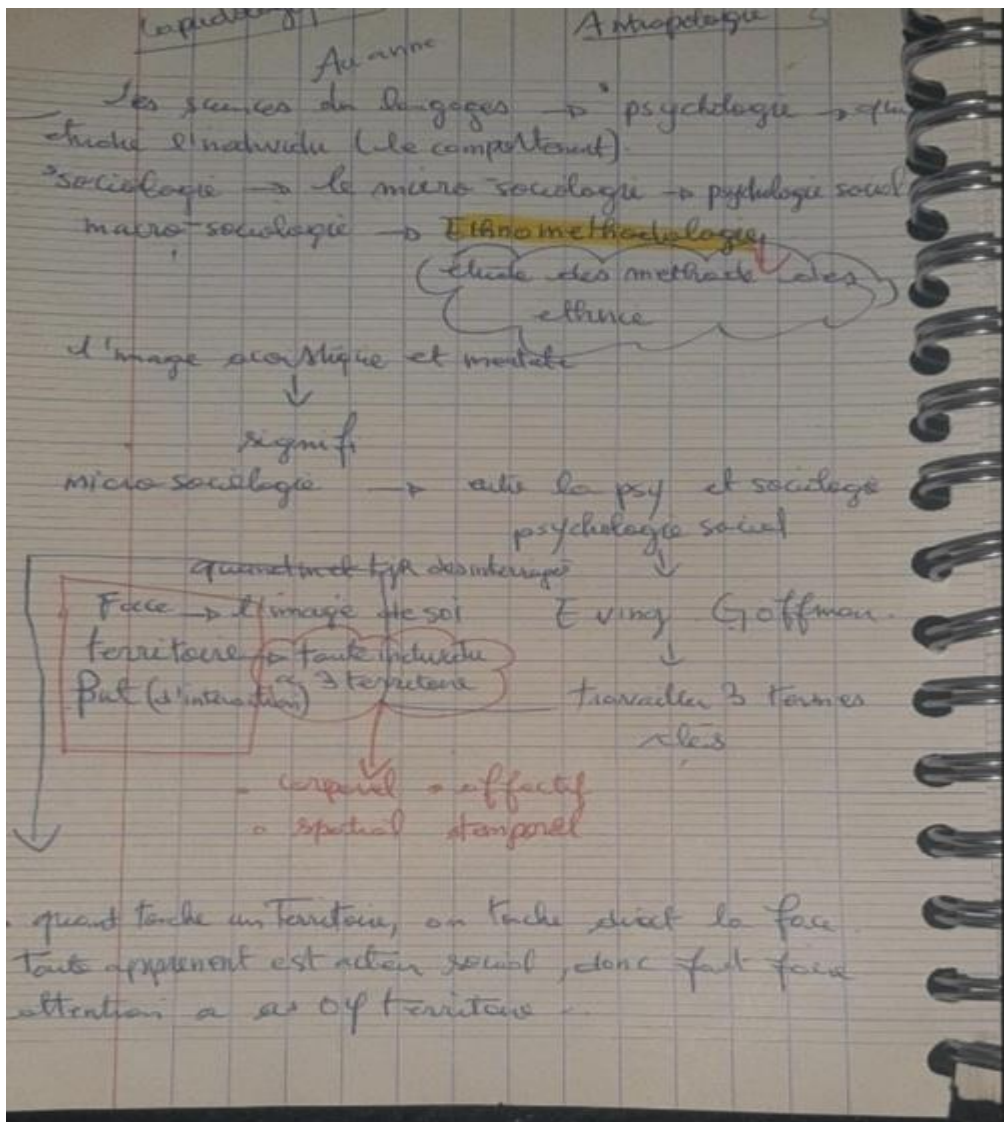 Antropologie
Au anne
Les sciences du langages → psychologie → qui
etudie l'individu (le comportement).
sociologie → le micro-sociologie → psychologie social
macro-sociologie → Ethnomethodologie
(étude des methode des
ethnie
l'image acoustique et mentale
↓
signifi
micro sociologie → entre la psy et sociologie
psychologie social
↓
quand met tjr des interrages
Face → l'image de soi
Eving Goffman.
↓
territoire → toute individu
a 3 territoire
But (d'interaction)
travailler 3 termes
clés
- corporel - affectif
- spatial temporel
quand touche un Territoire, on touche direct la face
Toute apprenent est acteur social, donc faut faire
attention a ces 04 territoire.